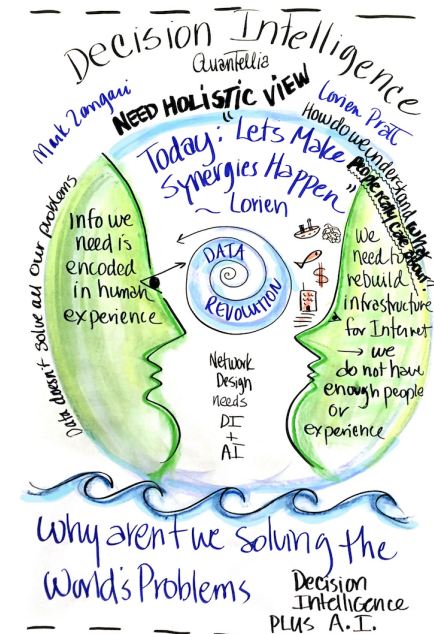 Decision Intelligence
Quantellia
Mark Zangari
NEED HOLISTIC VIEW
Lorien Pratt
How do we understand what
people really care about?
Today: "Lets Make
Synergies Happen"
~ Lorien
Data doesn't solve all our problems
Info we
need is
encoded
in human
experience
DATA
REVOLUTION
$
Network
Design
needs
DI
+
AI
We
need to
rebuild
infrastructure
for Internet
→ we
do not have
enough people
or
experience
Why aren't we solving the
World's Problems
Decision
Intelligence
PLUS A.I.